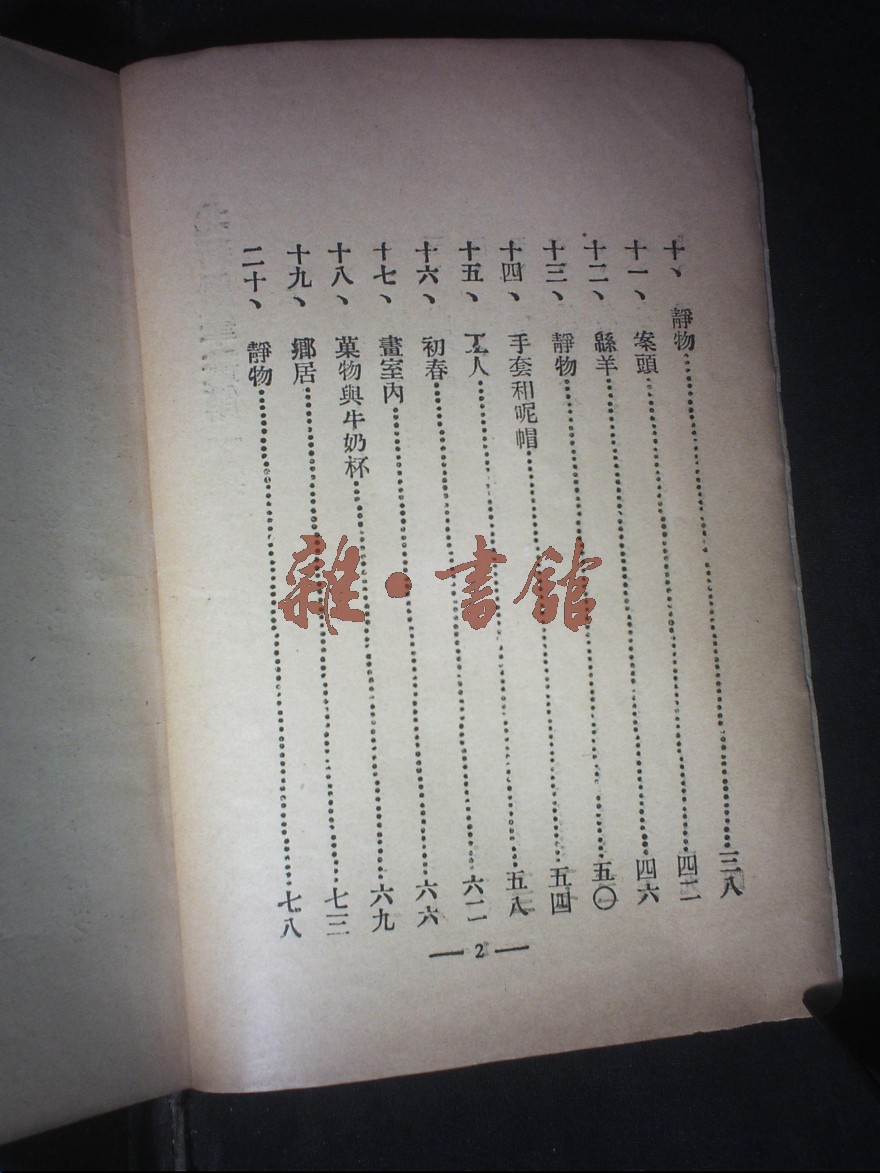 十、靜物……三八
十一、案頭……四二
十二、緜羊……四六
十三、靜物……五〇
十四、手套和呢帽……五四
十五、工人……五八
十六、初春……六二
十七、畫室內……六六
十八、菓物與牛奶杯……六九
十九、鄉居……七三
二十、靜物……七八
— 2 —
雜·書館